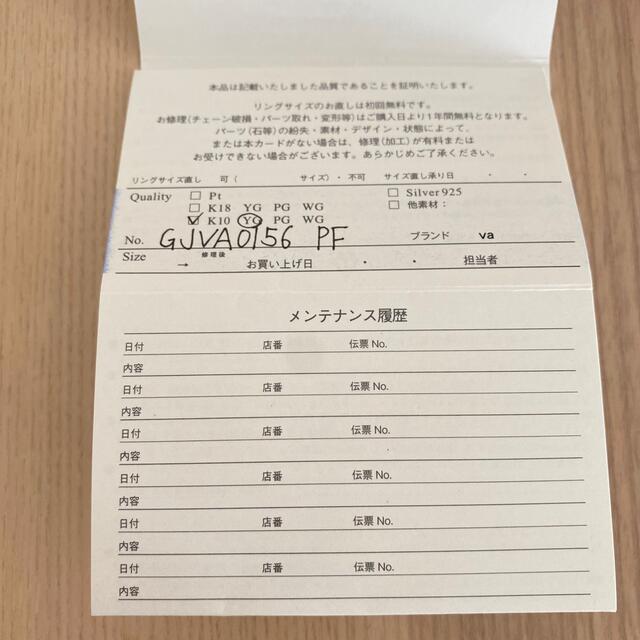 本品は記載いたしました品質であることを証明いたします。
リングサイズのお直しは初回無料です。
お修理(チェーン破損・パーツ取れ・変形等)はご購入日より1年間無料となります。
パーツ(石等)の紛失・素材・デザイン・状態によって、
または本カードがない場合は、修理(加工)が有料または
お受けできない場合がございます。あらかじめご了承ください。
リングサイズ直し 可( サイズ)・不可 サイズ直し承り日 ・ ・
Quality □ Pt □ Silver925
□ K18 YG PG WG □ 他素材:
☑ K10 YG PG WG
No. GJVA0156 PF ブランド va
Size → 修理後 お買い上げ日 ・ ・ 担当者
メンテナンス履歴
日付 店番 伝票 No.
内容
日付 店番 伝票 No.
内容
日付 店番 伝票 No.
内容
日付 店番 伝票 No.
内容
日付 店番 伝票 No.
内容
日付 店番 伝票 No.
内容